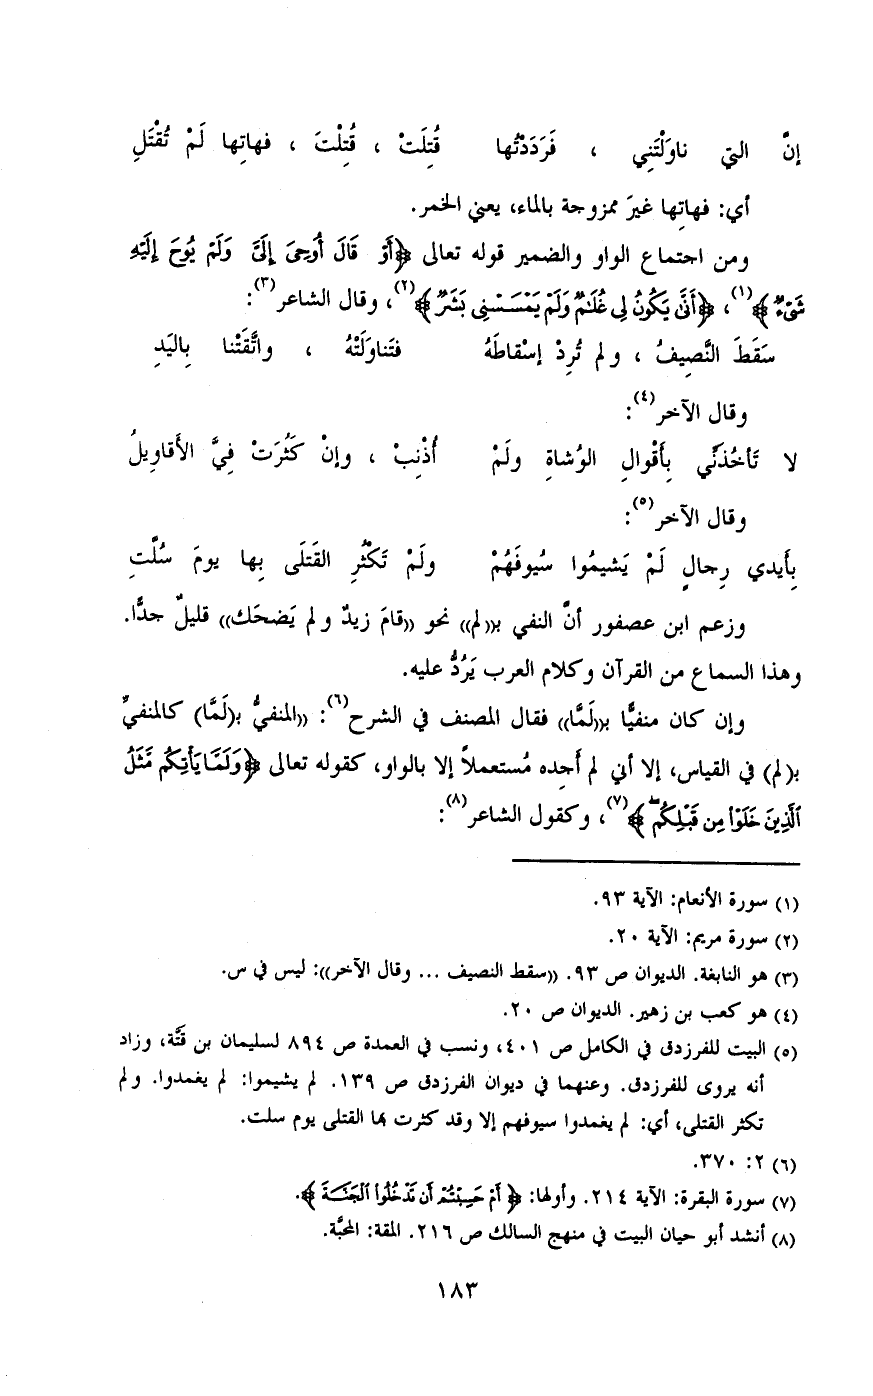 إنَّ التي ناوَلْتَنِي ، فَرَدَدْتُها قُتِلَتْ ، قُتِلْتَ ، فهاتِها لَمْ تُقْتَلِ
أي: فهاتِها غيرَ ممزوجة بالماء، يعني الخمر.
ومن اجتماع الواو والضمير قوله تعالى ﴿أَوْ قَالَ أُوحِىَ إِلَىَّ وَلَمْ يُوحَ إِلَيْهِ
شَىْءٌ﴾(١)، ﴿أَنَّىٰ يَكُونُ لِى غُلَٰمٌ وَلَمْ يَمْسَسْنِى بَشَرٌ﴾(٢)، وقال الشاعر(٣):
سَقَطَ النَّصِيفُ ، ولم تُرِدْ إسْقاطَهُ فتَناوَلَتْهُ ، واتَّقَتْنا بِاليَدِ
وقال الآخر(٤):
لا تَأخُذَنِّي بِأَقْوالِ الوُشاةِ ولَمْ أُذْنِبْ ، وإنْ كَثُرَتْ فِيَّ الأَقاوِيلُ
وقال الآخر(٥):
بِأَيدي رِجالٍ لَمْ يَشيمُوا سُيوفَهُمْ ولَمْ تَكْثُرِ القَتلَى بِها يومَ سُلَّتِ
وزعم ابن عصفور أنَّ النفي بـ«لم» نحو «قامَ زيدٌ ولم يَضحَك» قليلٌ جدًّا.
وهذا السماع من القرآن وكلام العرب يَرُدُّ عليه.
وإن كان منفيًّا بـ«لَمَّا» فقال المصنف في الشرح(٦): «المنفيُّ بـ(لَمَّا) كالمنفيِّ
بـ(لم) في القياس، إلا أني لم أَجِده مُستعملاً إلا بالواو، كقوله تعالى ﴿وَلَمَّا يَأْتِكُم مَّثَلُ
ٱلَّذِينَ خَلَوْا۟ مِن قَبْلِكُم ۖ﴾(٧)، وكقول الشاعر(٨):
(١) سورة الأنعام: الآية ٩٣.
(٢) سورة مريم: الآية ٢٠.
(٣) هو النابغة. الديوان ص ٩٣. «سقط النصيف ... وقال الآخر»: ليس في س.
(٤) هو كعب بن زهير. الديوان ص ٢٠.
(٥) البيت للفرزدق في الكامل ص ٤٠١، ونسب في العمدة ص ٨٩٤ لسليمان بن قتَّة، وزاد
أنه يروى للفرزدق. وعنهما في ديوان الفرزدق ص ١٣٩. لم يشيموا: لم يغمدوا. ولم
تكثر القتلى، أي: لم يغمدوا سيوفهم إلا وقد كثرت بها القتلى يوم سلت.
(٦) ٢: ٣٧٠.
(٧) سورة البقرة: الآية ٢١٤. وأولها: ﴿أَمْ حَسِبْتُمْ أَن تَدْخُلُوا۟ ٱلْجَنَّةَ﴾.
(٨) أنشد أبو حيان البيت في منهج السالك ص ٢١٦. المقة: المحبَّة.
١٨٣